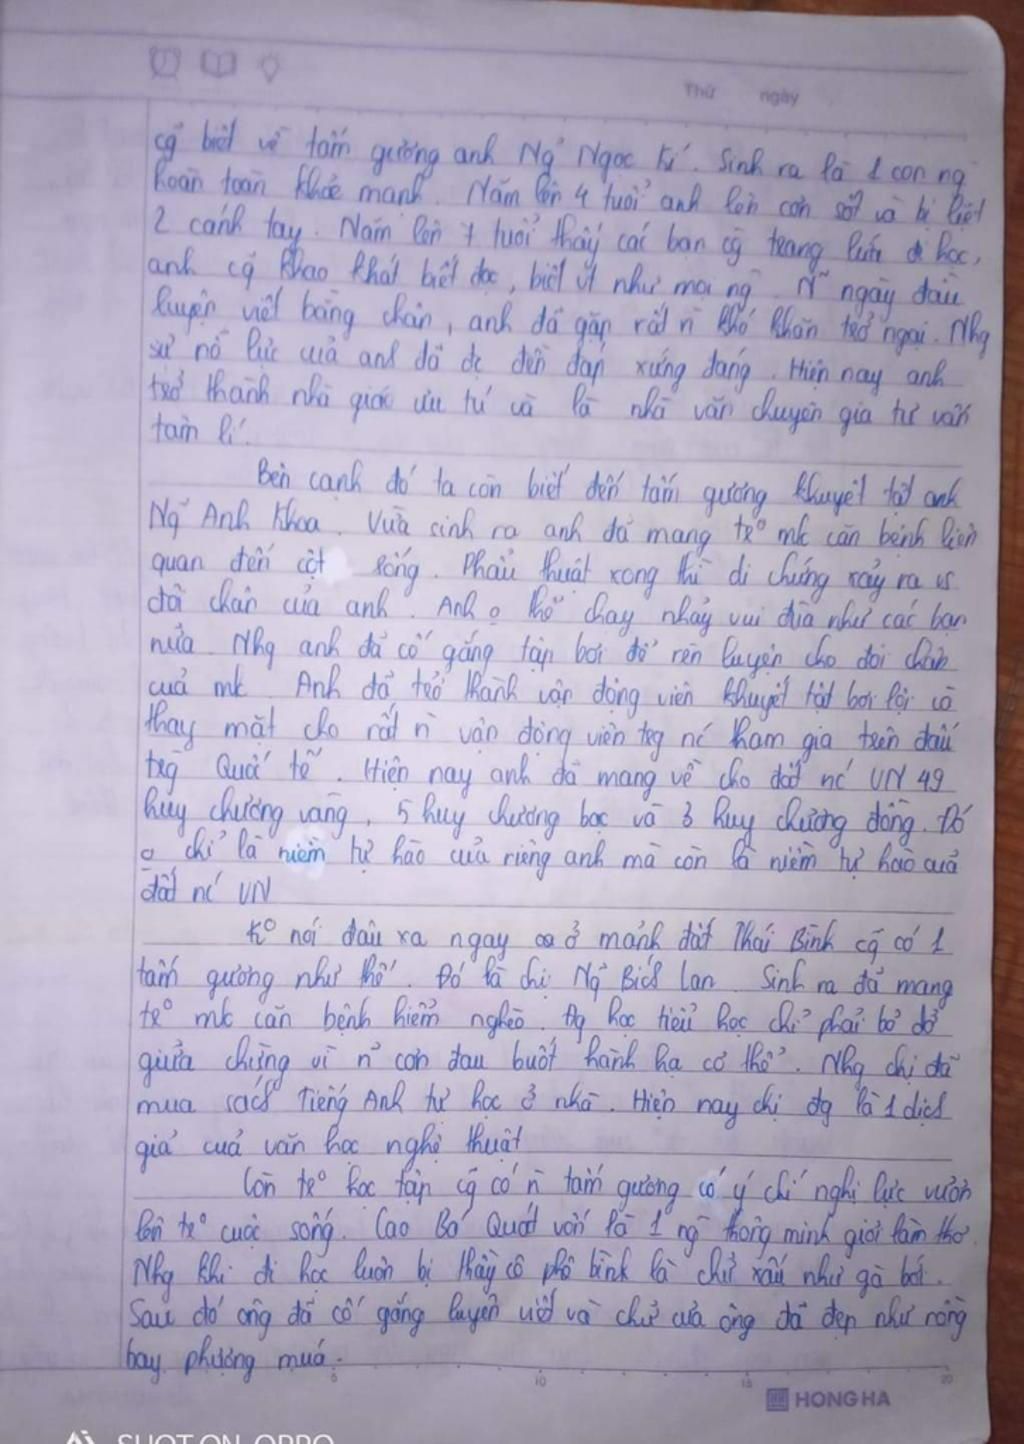 Thứ ngày
cg biết về tấm gương anh Ng~ Ngọc Kí. Sinh ra là 1 con ng`
hoàn toàn khỏe mạnh. Năm lên 4 tuổi anh lên cơn sốt và bị liệt
2 cánh tay. Năm lên 7 tuổi thấy các bạn cg trang lứa đi học,
anh cg~ khao khát biết đọc, biết vt như mọi ng`. N~ ngày đầu
luyện viết bằng chân, anh đã gặp rất n` khó khăn trở ngại. Nhg
sự nỗ lực của anh đã đc đền đáp xứng đáng. Hiện nay anh
trở thành nhà giáo ưu tú và là nhà văn chuyên gia tư vấn
tâm lí.
Bên cạnh đó ta còn biết đến tấm gương khuyết tật anh
Ng~ Anh Khoa. Vừa sinh ra anh đã mang trº mk căn bệnh liên
quan đến cột sống. Phẫu thuật xong thì di chứng xảy ra vs
đôi chân của anh. Anh º thể chạy nhảy vui đùa như các bạn
nữa. Nhg anh đã cố gắng tập bơi để rèn luyện cho đôi chân
của mk. Anh đã trở thành vận động viên khuyết tật bơi lội và
thay mặt cho rất n` vận động viên trg nc tham gia trên đấu
trg Quốc tế. Hiện nay anh đã mang về cho đất nc VN 49
huy chương vàng, 5 huy chương bạc và 3 huy chương đồng. Đó
º chỉ là niềm tự hào của riêng anh mà còn là niềm tự hào của
đất nc VN
Kº nói đâu xa ngay ở mảnh đất Thái Bình cg~ có 1
tấm gương như thế. Đó là chị Ng~ Bích Lan. Sinh ra đã mang
trº mk căn bệnh hiểm nghèo. Đg học tiểu học chị phải bỏ dở
giữa chừng vì n~ cơn đau buốt hành hạ cơ thể. Nhg chị đã
mua sách Tiếng Anh tự học ở nhà. Hiện nay chị đg là 1 dịch
giả của văn học nghệ thuật
Còn trº học tập cg~ có n` tấm gương có ý chí nghị lực vươn
lên trº cuộc sống. Cao Bá Quát vốn là 1 ng` thông minh giỏi làm thơ.
Nhg khi đi học luôn bị thầy cô phê bình là chữ xấu như gà bới.
Sau đó ông đã cố gắng luyện viết và chữ của ông đã đẹp như rồng
bay phượng múa.
5 10 15 20
HONG HA
SHOT ON OPPO